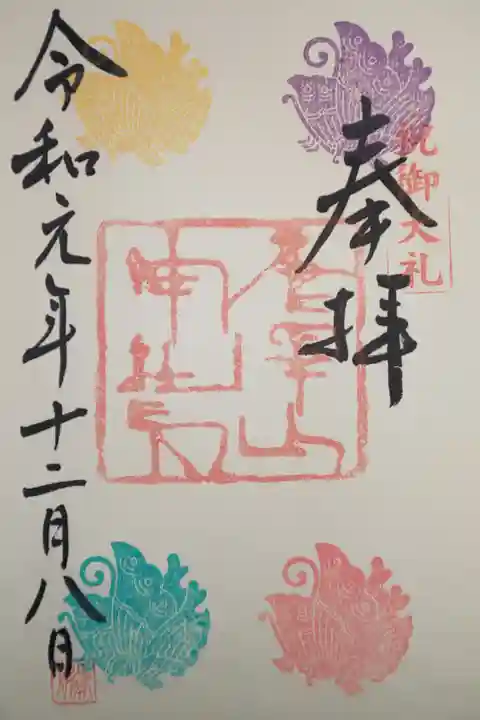 祝御大礼
奉拝
神社
令和元年十二月八日